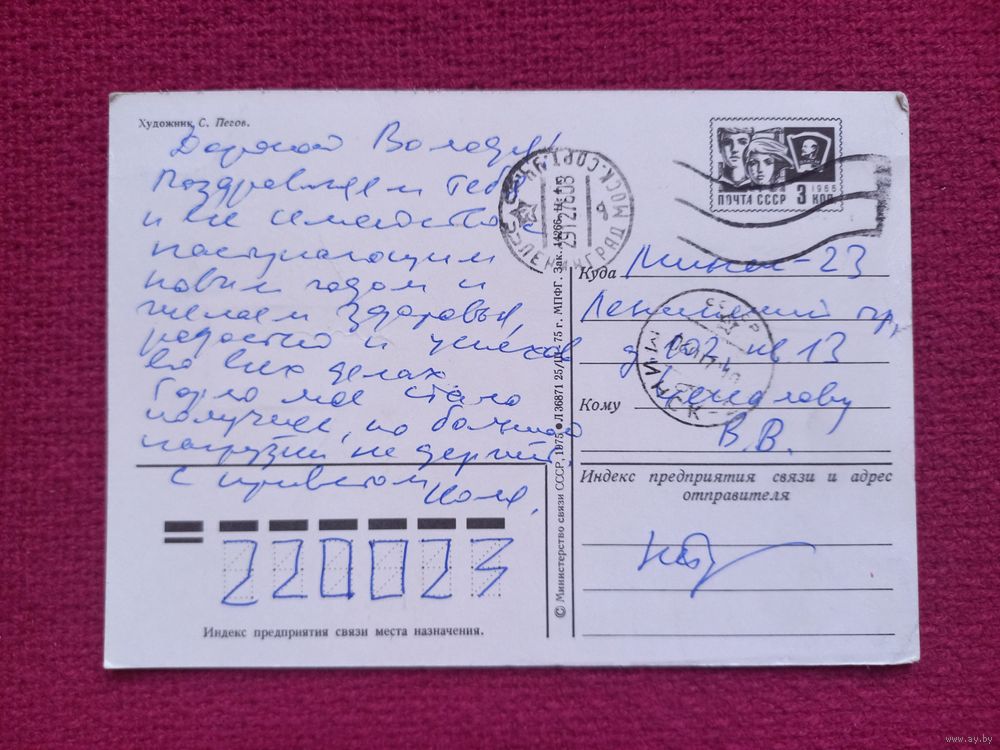 Художник С. Пегов.
Дорогой Володя!
Поздравляем тебя
и все семейство с
наступающим
новым годом и
желаем здоровья,
радостно и успехов
во всех делах.
Горло мое стало
получше, но большой
нагрузки не держит.
С приветом
Коля.
220023
Индекс предприятия связи места назначения.
© Министерство связи СССР, 1975 ● Л 36871 25/IX 75 г. МПФГ. Зак. 14266.
ЛЕНИНГРАД
МОСК.СОРТ.
291276
ПОЧТА СССР
3 КОП
1966
Куда Минск-23
Ленинский пр,
д 102 кв 13
МИНСК
СССР
Кому
В.В.
Индекс предприятия связи и адрес
отправителя
www.ay.by